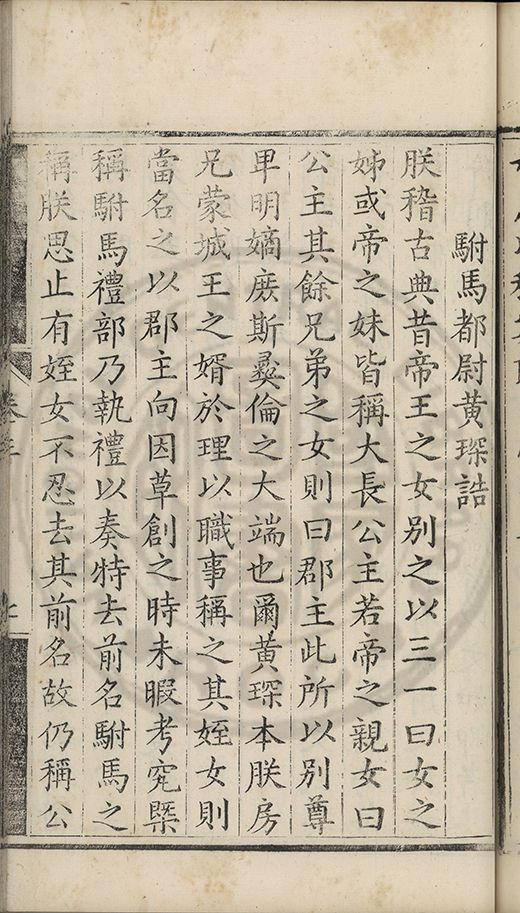 駙馬都尉黃琛誥
朕稽古典昔帝王之女別之以三一曰女之
姊或帝之妹皆稱大長公主若帝之親女曰
公主其餘兄弟之女則曰郡主此所以別尊
卑明嫡庻斯彞倫之大端也爾黃琛本朕房
兄蒙城王之婿於理以職事稱之其姪女則
當名之以郡主向因草創之時未暇考究槩
稱駙馬禮部乃執禮以奏特去前名駙馬之
稱朕思止有姪女不忍去其前名故仍稱公